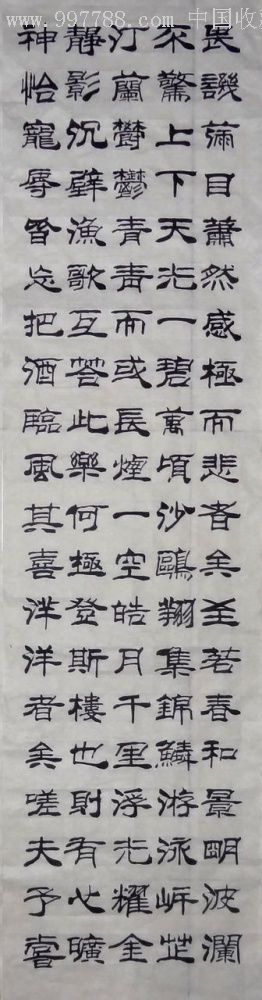 www.997788.com 中国收
畏譏滿目蕭然感極而悲者矣至若春和景明波瀾
不驚上下天光一碧萬頃沙鷗翔集錦鱗游泳岸芷
汀蘭鬱鬱青青而或長煙一空皓月千里浮光耀金
靜影沉璧漁歌互答此樂何極登斯樓也則有心曠
神怡寵辱皆忘把酒臨風其喜洋洋者矣嗟夫予嘗